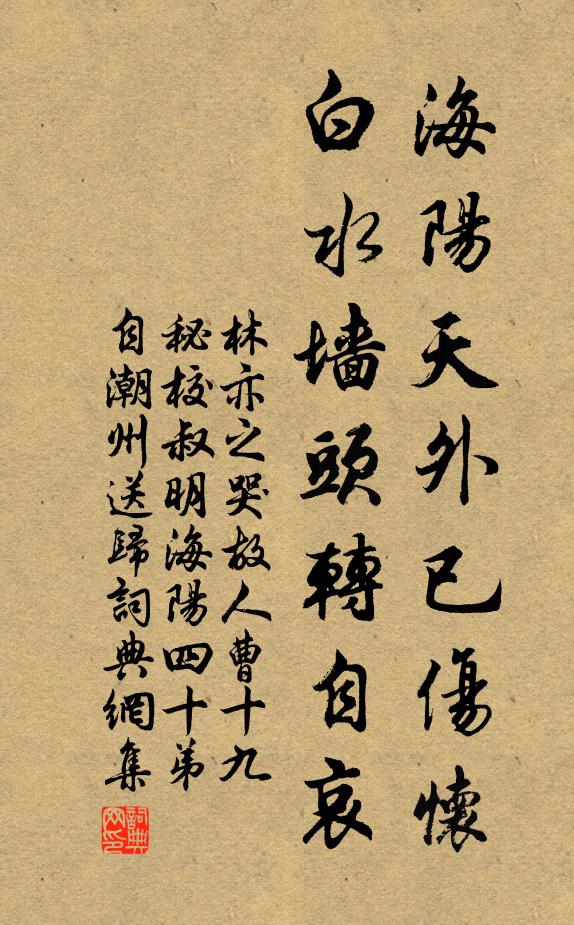 海陽天外已傷懷
白水墙頭轉自哀
林亦之哭故人曹十九
秘校叔明海陽四十第
自潮州送歸詞典網集
詞典網印